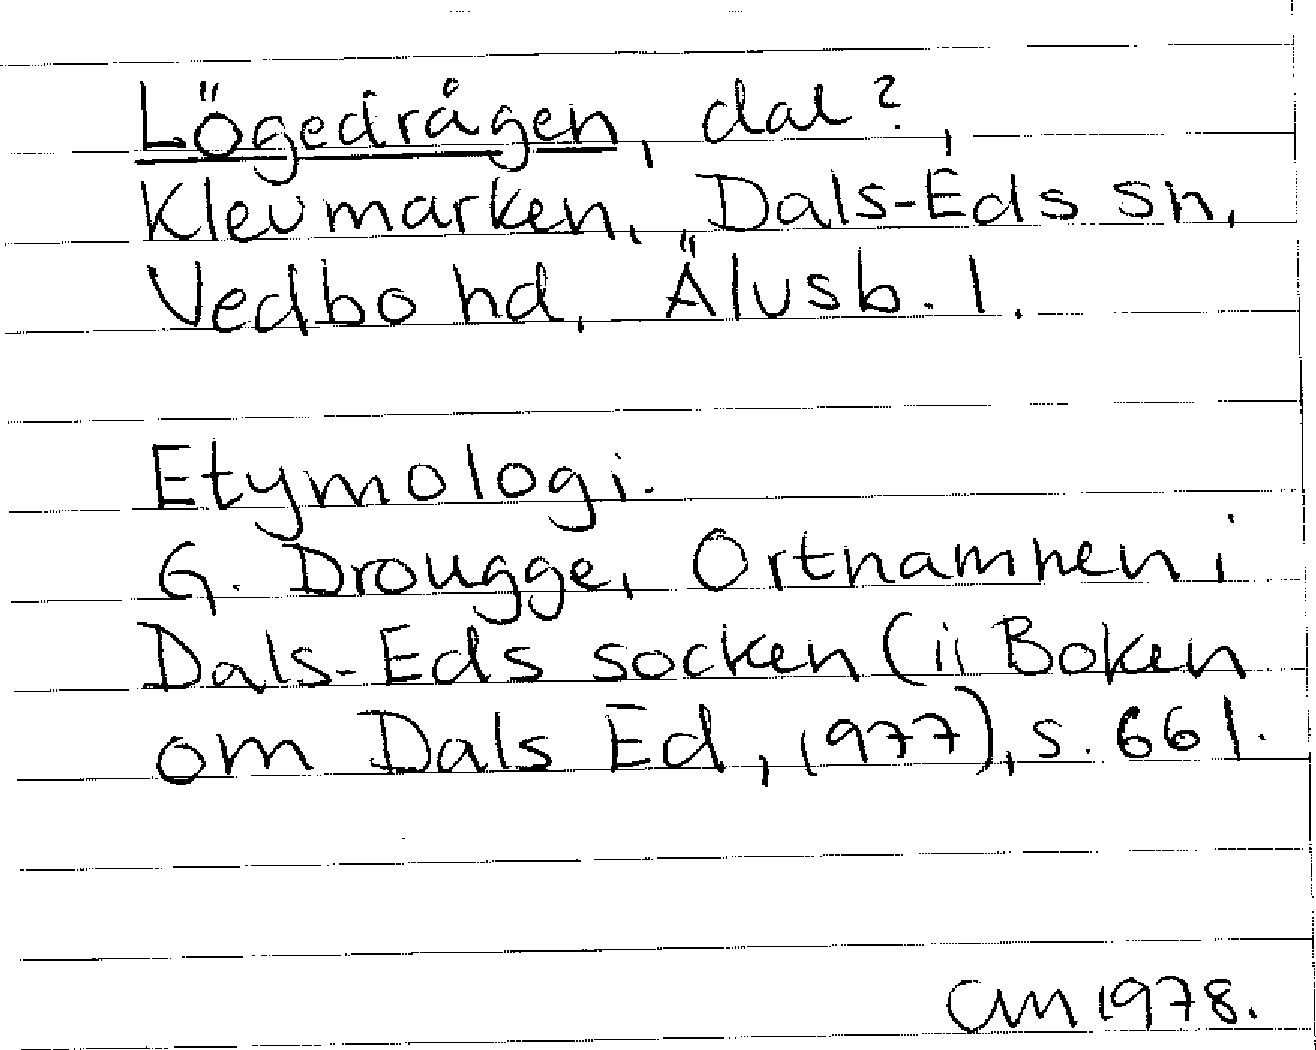 Lögedrågen, dal?,
Klevmarken, Dals-Eds sn,
Vedbo hd, Älvsb. l.
Etymologi.
G. Drougge, Ortnamnen i
Dals-Eds socken (i: Boken
om Dals Ed, 1977), s. 661.
CM 1978.